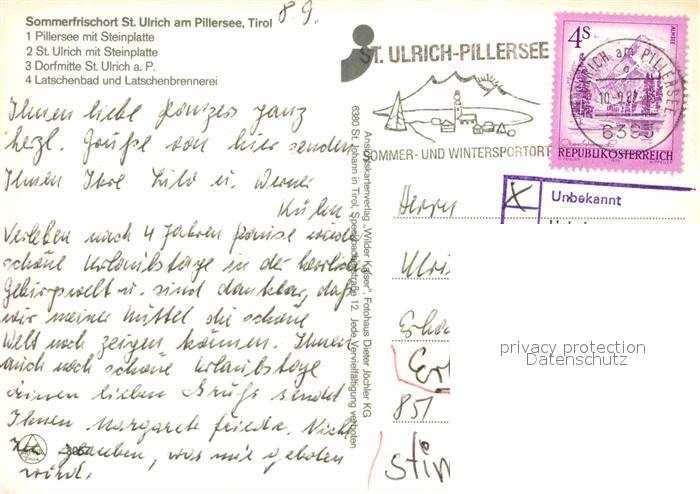 Sommerfrischort St. Ulrich am Pillersee, Tirol
1 Pillersee mit Steinplatte
2 St. Ulrich mit Steinplatte
3 Dorfmitte St. Ulrich a. P.
4 Latschenbad und Latschenbrennerei
8.9.
Ihnen liebe ganz
herzl. Grüße von hier senden
Ihnen Ihre u. Werner
Verleben nach 4 Jahren Pause wieder
schöne Urlaubstage in der herrlichen
Gebirgswelt u. sind dankbar, daß
wir meiner Mutter die schöne
Welt noch zeigen können. Ihnen
auch noch schöne Urlaubstage
einen lieben Gruß sendet
Ihnen Margarete Nicht
zu glauben, was mir geboten
wird.
3067
Ansichtskartenverlag „Wilder Kaiser", Fotohaus Dieter Jöchler KG
6380 St. Johann in Tirol, Speckbacherstraße 12. Jede Vervielfältigung verboten
ST. ULRICH-PILLERSEE
SOMMER- UND WINTERSPORTORT
4S
ALMSEE
REPUBLIK ÖSTERREICH
ULRICH am PILLERSEE
6395
X
Unbekannt
Herrn
Ulri
851
privacy protection
Datenschutz